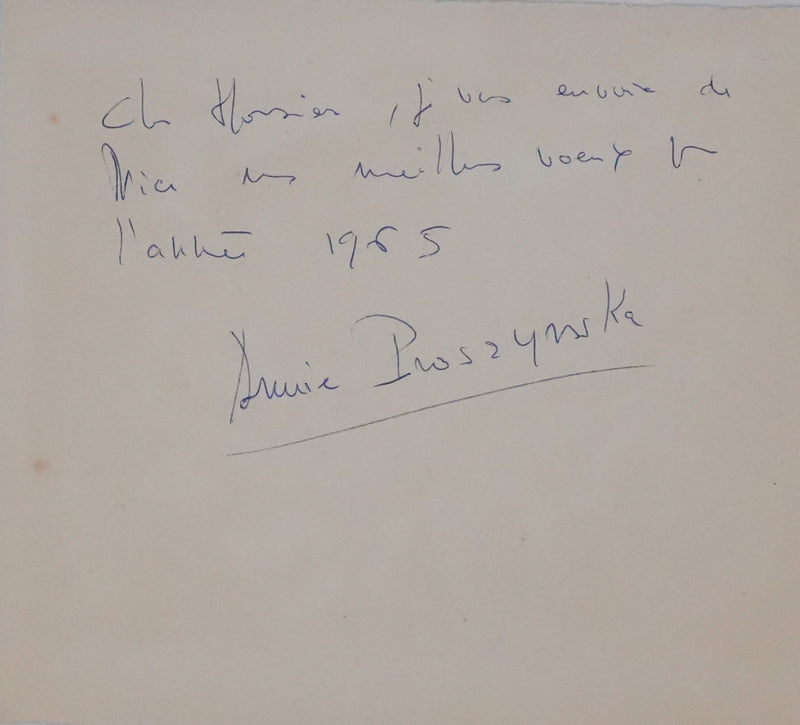 Cher Monsieur, je vous envoie de
Nice mes meilleurs voeux pour
l'année 1965
Annie Proszynska